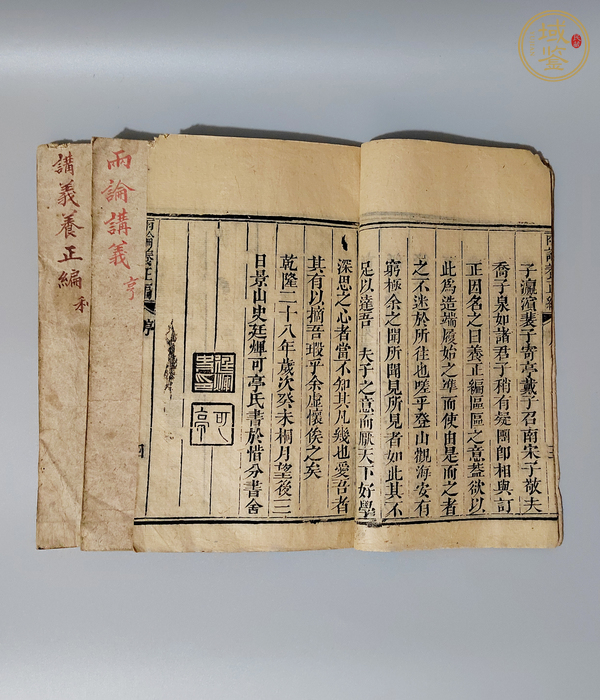 子瀛渲裴子寄亭戴子召南宋子敬夫
喬子泉如諸君子稍有疑團卽相與訂
正因名之曰養正編區區之意葢欲以
此爲造端履始之準而使由是而之者
之不迷於所往也嗟乎登山觀海安有
窮極余之聞所聞見所見者如此其不
足以達吾 夫子之意而厭天下好學
深思之心者當不知其凡幾也愛吾者
其有以摘吾瑕乎余虛懷俟之矣
乾隆二十八年歲次癸未桐月望後三
日景山史廷煇可亭氏書於惜分書舍
廷煇
書印
可
亭
序
四
兩論講義
亨
講義養正編
利